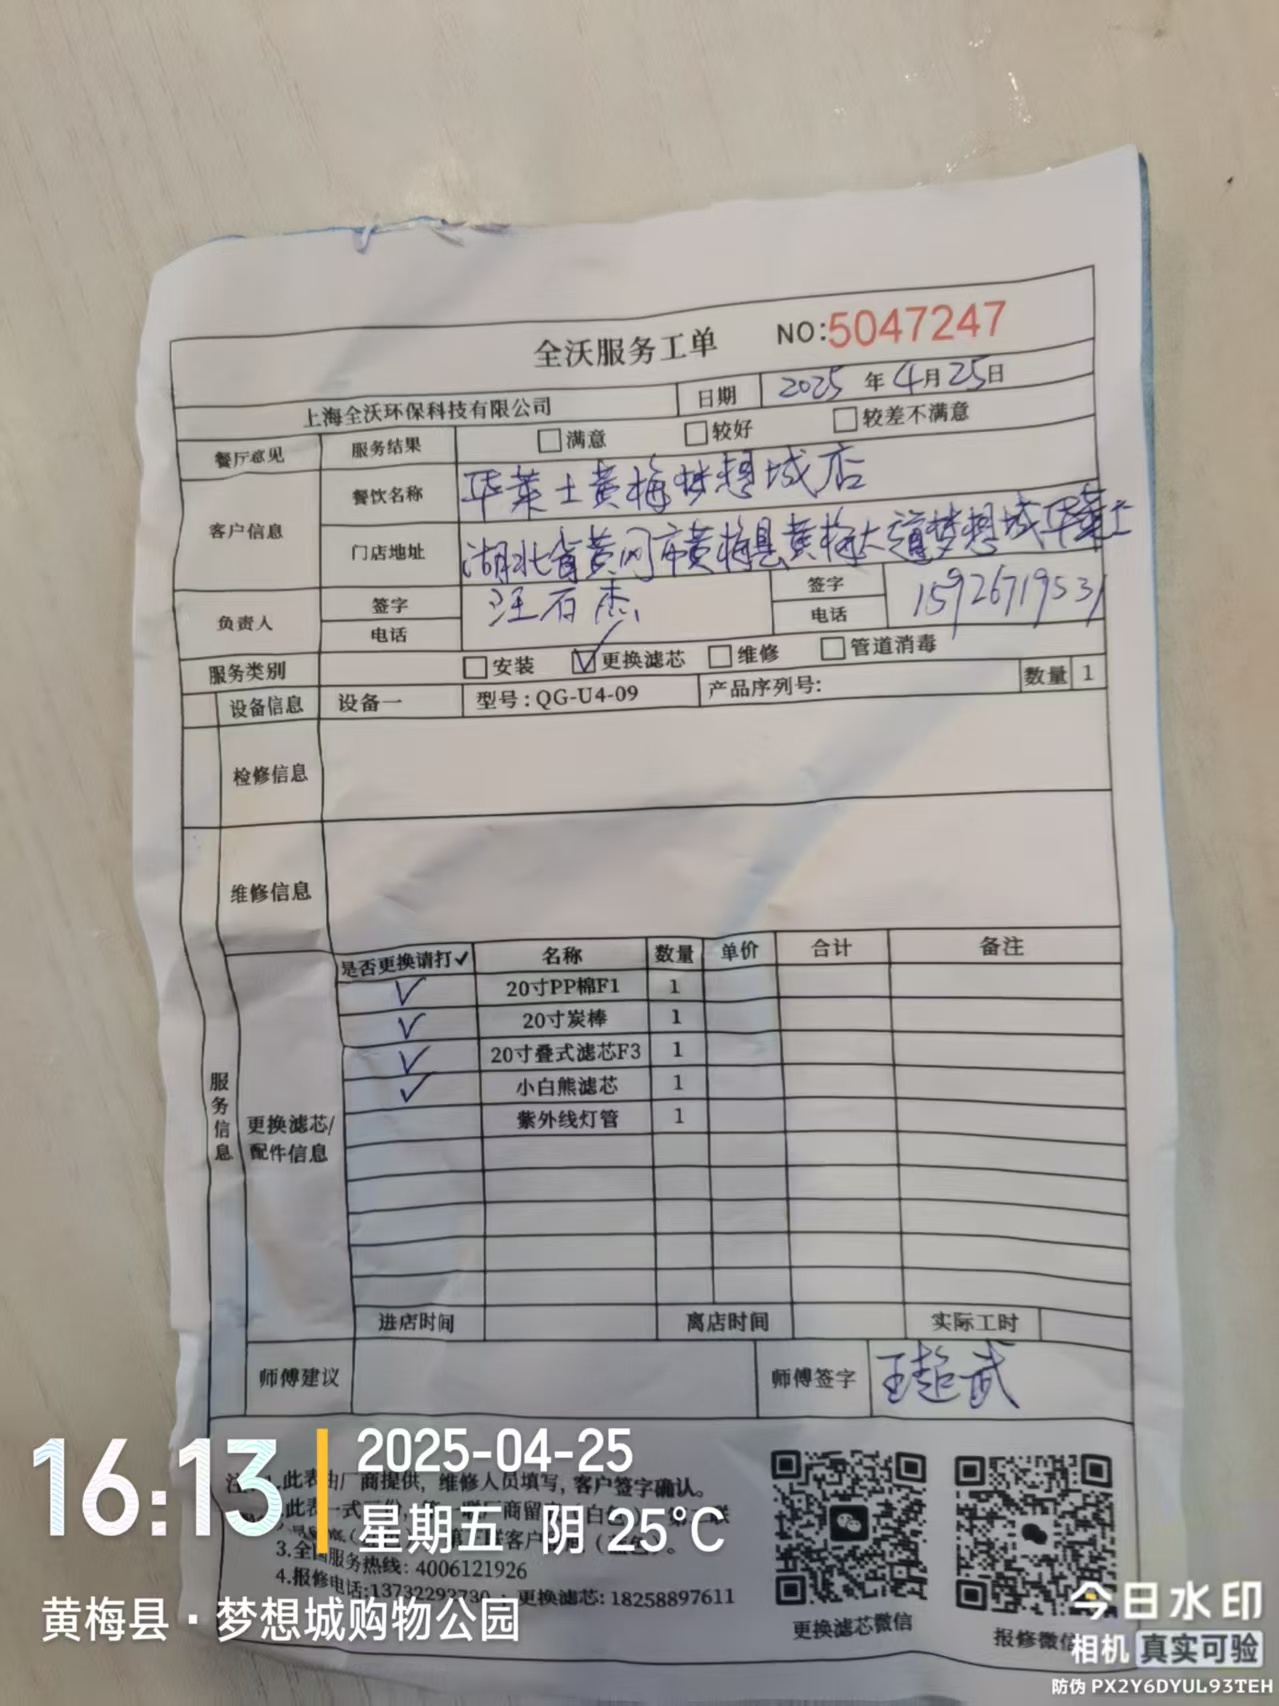 全沃服务工单 NO:5047247
上海全沃环保科技有限公司 日期 2025年4月25日
餐厅意见 服务结果 满意 较好 较差不满意
客户信息 餐饮名称 华莱士黄梅梦想城店
门店地址 湖北省黄冈市黄梅县黄梅大道梦想城华莱士
负责人 签字 汪石杰 签字 15926719531
电话 电话
服务类别 安装 ✓更换滤芯 维修 管道消毒
设备信息 设备一 型号:QG-U4-09 产品序列号: 数量 1
检修信息
维修信息
服务信息
更换滤芯/配件信息
是否更换请打✓ 名称 数量 单价 合计 备注
✓ 20寸PP棉F1 1
✓ 20寸炭棒 1
✓ 20寸叠式滤芯F3 1
✓ 小白熊滤芯 1
紫外线灯管 1
进店时间 离店时间 实际工时
师傅建议 师傅签字 王超武
注:1.此表由厂商提供,维修人员填写,客户签字确认。
3.全国服务热线: 4006121926
4.报修电话:13732292730 ; 更换滤芯: 18258897611
更换滤芯微信 报修微信
16:13 2025-04-25
星期五 阴 25°C
黄梅县·梦想城购物公园
今日水印
相机 真实可验
防伪 PX2Y6DYUL93TEH